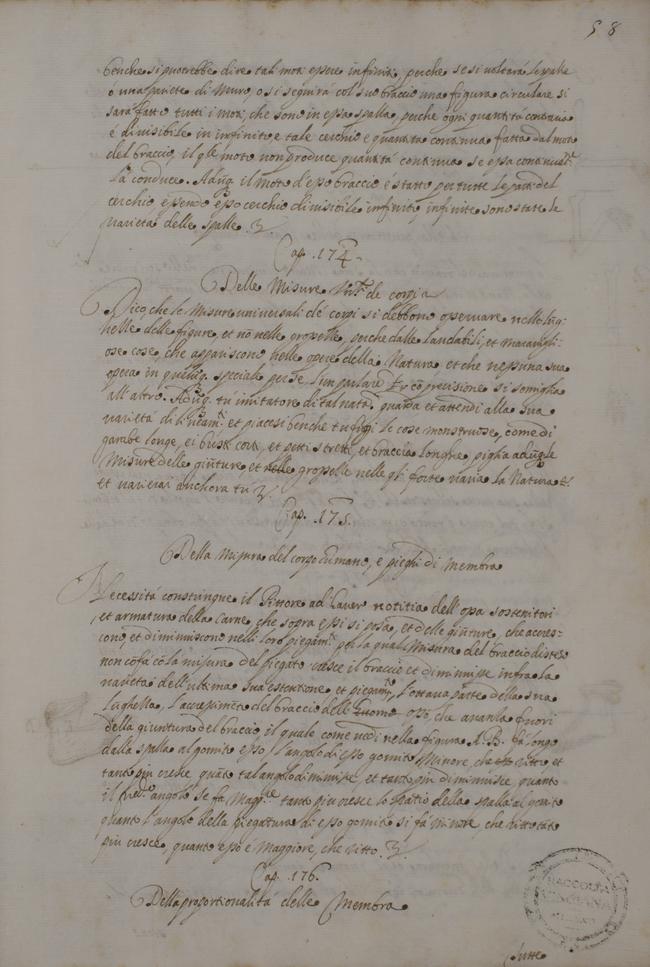 58
benche si potrebbe dire tali moti essere infiniti, perche se si voltará le spalle
ó una pariete di Muro, o si seguirá col suo braccio una figura circulare si
sará fatto tutti i moti, che sono in essa spalla, perche ogni quantitá continua
é diuisibile in infinito, e tale cerchio é quantitá continua fatta dal moto
del braccio, il qle moto non produce quantitá continua se essa continuat.
la conduce. Adũq. il moto d'esso braccio é stato per tutte le parti del
cerchio, essendo esso cerchio diuisibile infinito, infinite sono state le
varietá delle spalle.
Cap. 174.
Delle Misure de corpi
Dico, che le Misure uniuersali dé corpi si debbono osseruare nelle lũg-
hesse delle figure, et nõ nelle grossesse, perche dalle laudabili, et marauigli-
ose cose, che appariscono nelle opere della Natura et che nessuna sua
opera in qualũq. speciale per se l'un particulare cõ precisione si somiglia
all'altro. Adũq. tu imitatore di tal natã, guarda et attendi alla sua
varietá di lineamti. et piacesi benche tu fugi le cose monstruose, come di
gambe longe, ei busti corti, et petti stretti, et braccia longhe, piglia adũq. le
Misure delle giũture, et grossesse nelle qli forte varia la Natura,
et varierai anchora tu
Cap. 175.
Della Misura del corpo humano, e pieghi di Membra
Necessitá constringue il Pittore ad hauer notitia dell'ossa sostenitori
et armatura della carne, che sopra essi si posa, et delle giũture, che acres-
cono, et diminuiscono nelli loro piegamti. per la qual Misura del braccio disteso
non cõfá cõ la misura del piegato cresce il braccio et diminuisse infra la
varietá dell'ultima sua estentione et piegamto, l'ottaua parte della sua
lughessa, l'accressimẽto del braccio dell' osso, che auanza fuori
della giuntura del braccio, il quale come vedi nella figura A. B. fá longo
dalla spalla al gomito esso l'angolo di esso gomito Minore, che ritto et
tanto piu cresce, quãto tal angolo diminuisse, et tanto piu diminuisce, quanto
il angolo se fa Maggre. tanto piu cresce lo spatio della spalla al gomito
quanto l'angolo della piegatura di esso gomito si fá Minore, che ritto
piu cresce, quanto esso é Maggiore, che ritto.
Cap. 176.
Della proportionalitá delle Membra
Tutte
RACCOLTA
VINCIANA
MILANO